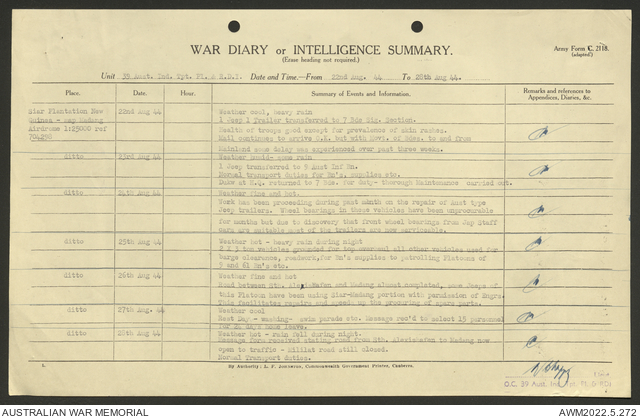 WAR DIARY or INTELLIGENCE SUMMARY.
(Erase heading not required.)
Army Form C. 2118.
(adapted)
Unit 39 Aust. Ind. Tpt. Pl. Date and Time—From 22nd Aug. 44 To 28th Aug 44.
Place. Date. Hour. Summary of Events and Information. Remarks and references to Appendices, Diaries, &c.
Siar Plantation New Guinea - map Madang Airdrome 1:25000 ref
22nd Aug 44
Weather cool, heavy rain
1 Jeep 1 Trailer transferred to 7 Bde Sig. Section.
Health of troops good except for prevalence of skin rashes.
Mail continues to arrive O.K. but with Movt. of Bdes. to and from
Mainland some delay was experienced over past three weeks.
ditto 23rd Aug 44
Weather - some rain
1 Jeep transferred to 9 Aust Inf Bn.
Normal transport duties for Bn's, supplies etc.
Dukw at H.Q. returned to 7 Bde. for duty- thorough Maintenance carried out.
ditto 24th Aug 44
Weather fine and hot.
Work has been proceeding during past month on the repair of Aust type
Jeep trailers. Wheel bearings in these vehicles have been unprocurable
for months but due to discovery that front wheel bearings from Jap Staff
cars are suitable most of the trailers are now serviceable.
ditto 25th Aug 44
Weather hot - heavy rain during night
vehicles grounded for top overhaul all other vehicles used for
barge clearance, roadwork, for Bn's supplies to patrolling Platoons of
9 and 61 Bn's etc.
ditto 26th Aug 44
Weather fine and hot
Road between Nth. Alexishafen and Madang almost completed, some Jeeps of
this Platoon have been using Siar-Madang portion with permission of Engrs.
This facilitates repairs and speeds up the procuring of spare parts.
ditto 27th Aug. 44
Weather cool
Rest Day - washing- swim parade etc. Message rec'd to select 15 personnel
for 24 days home leave.
ditto 28th Aug 44
Weather hot - rain fell during night.
Message form received stating road from Nth. Alexishafen to Madang now
open to traffic - road still closed.
Normal Transport duties.
By Authority: L. F. Johnston, Commonwealth Government Printer, Canberra.
O.C. 39 Aust. Ind. Tpt. Pl.
AUSTRALIAN WAR MEMORIAL
AWM2022.5.272